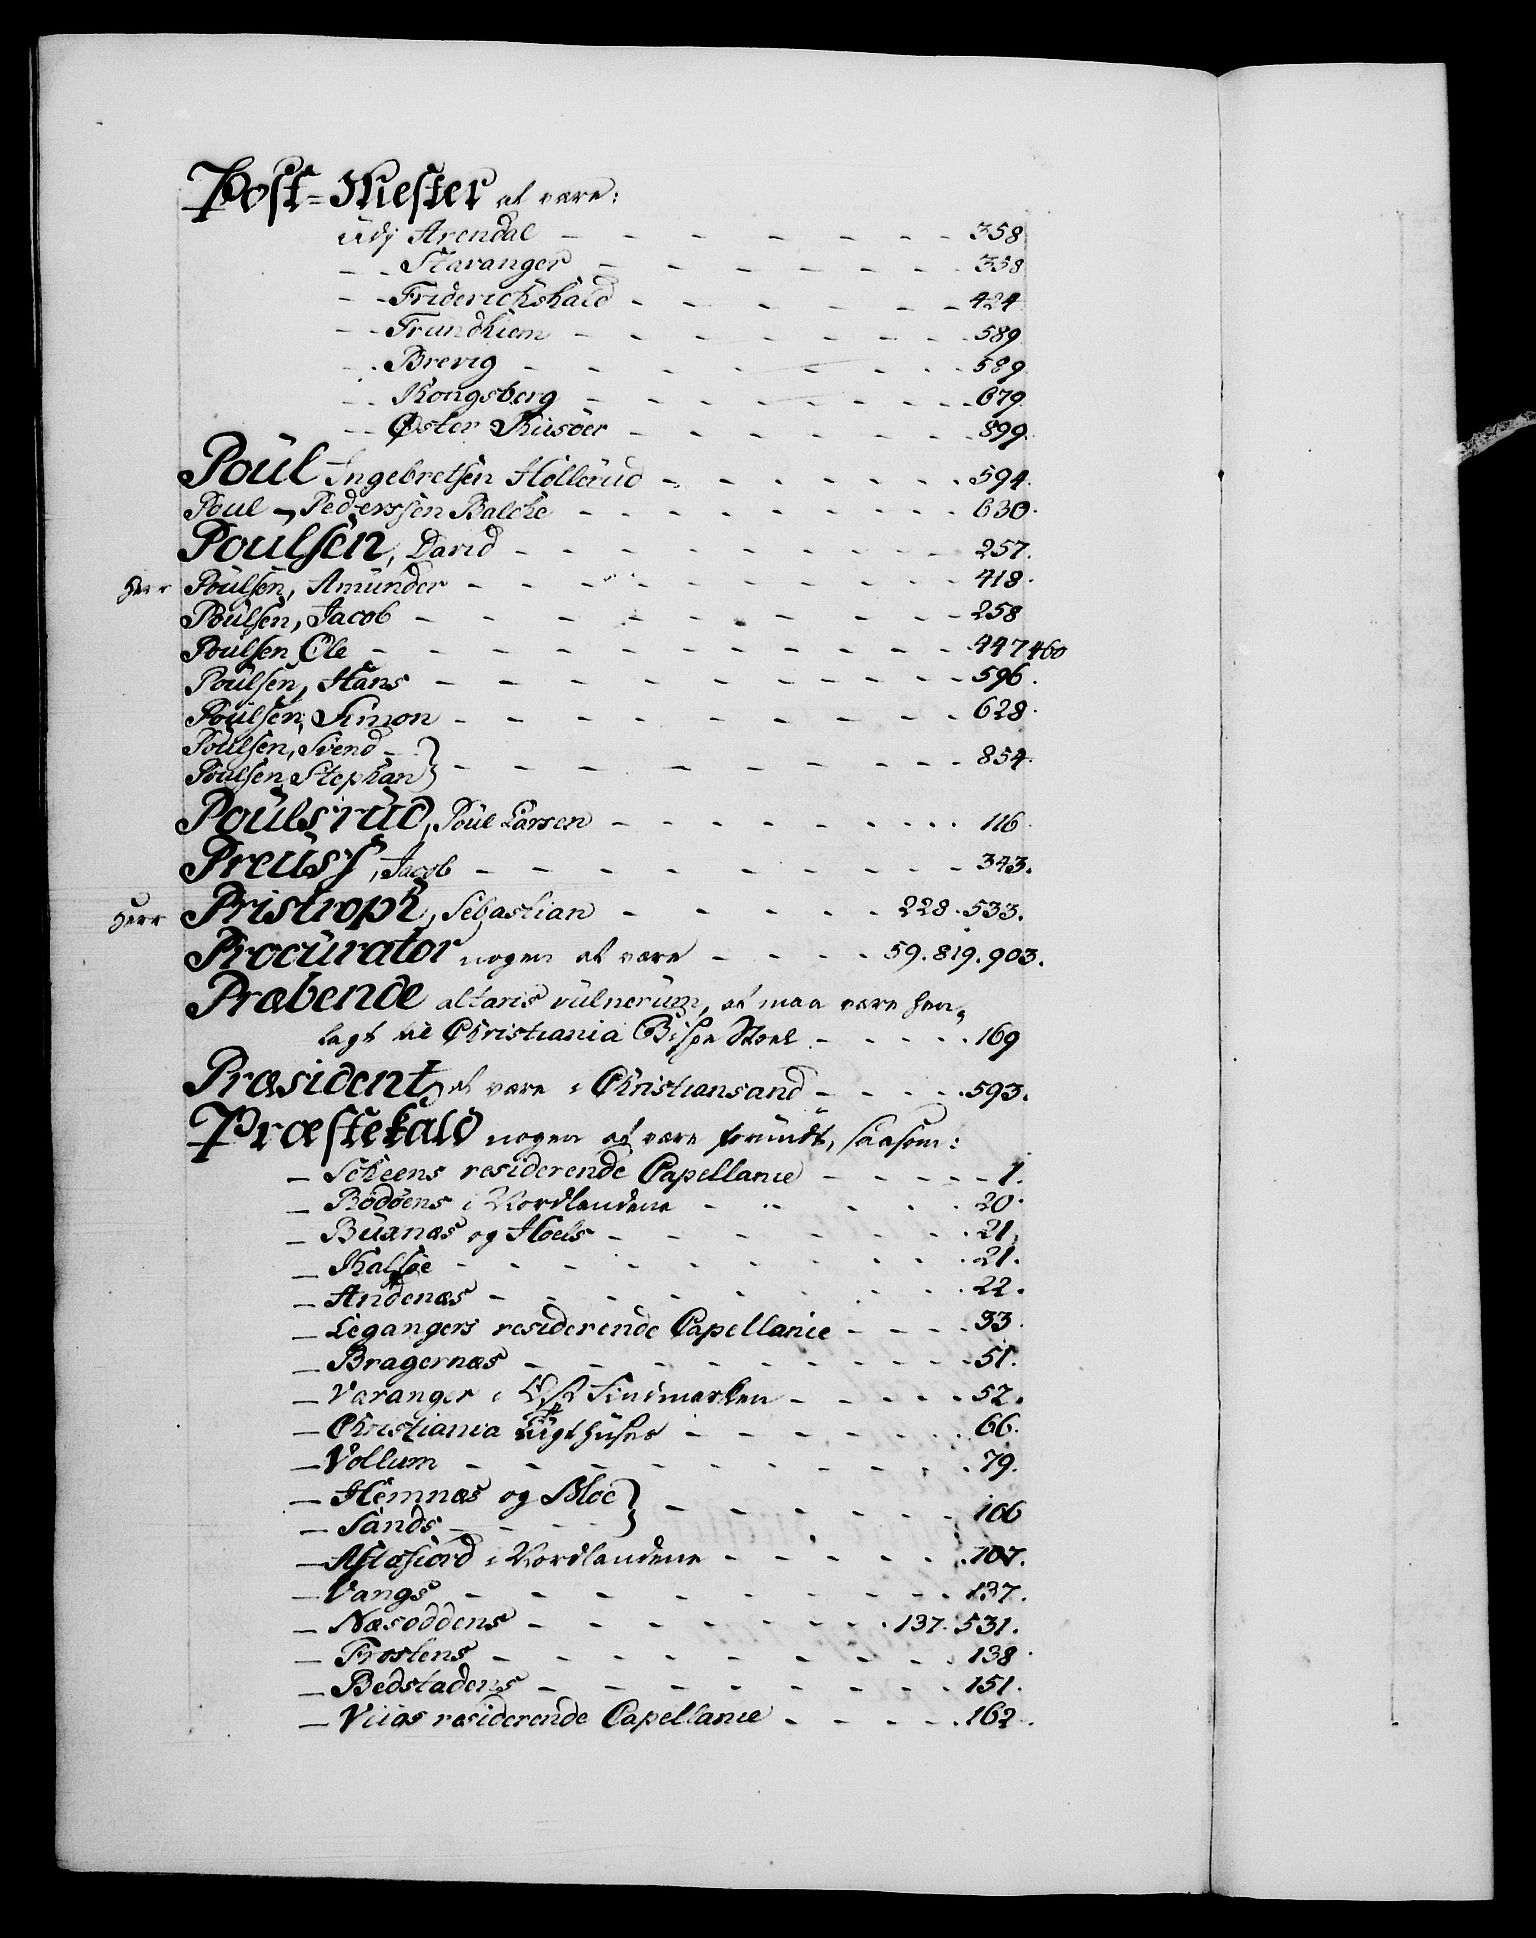 Post-Mester at være:
udj Arendal - - - - - - - - 358
- - Stavanger - - - - - - - 358
- - Friderichshald - - - - - - 424
- - Trundhiem - - - - - - - 589
- - Brevig - - - - - - - - 589
- - Kongsberg - - - - - - - - 679
- - Øster Riisöer - - - - - - 899
Poül Ingebretsen Hollerud - - - - - - 594.
Poul - Pederssen Balche - - - - - - - 630.
Poulsen, David - - - - - - - - 257.
Herr Poülsen, Amünder - - - - - - - - 418.
Poülsen, Jacob - - - - - - - - 258
Poulsen Ole - - - - - - - - - 447 460
Poülsen, Hans - - - - - - - - 596.
Poülsen, Simon - - - - - - - - 628.
Poulsen, Svend -
Poulsen Stephan } - - - - - - - - 854.
Poülsrud, Poül Larsen - - - - - - - 116
Preüss, Jacob - - - - - - - - 343.
Herr Pristroph, Sebastian - - - - - 228. 533.
Procürator nogen at være - - - - 59. 819. 903.
Præbende altaris vülnerüm, at maa være hen-
lagt til Christiania Bispe Stoel - - - - - 169
Præsident, at være i Christiansand - - - - 593.
Præstekald nogen at være forundt, saasom:
- Scheens residerende Capellanie - - - - - 1.
- Rödöens i Nordlandene - - - - - 20.
- Buxnæs og Hoels - - - - - - - 21.
- Kalsøe - - - - - - - - - 21.
- Andenæs - - - - - - - - 22.
- Legangers residerende Capellanie - - - - 33.
- Bragernæs - - - - - - - - 51.
- Varanger i Øst Findmarken - - - - - 52.
- Christiania Tugthuses - - - - - - 66.
- Vollum - - - - - - - - - 79.
- Hemnæs og Bloe
- Sands - - - - } - - - - - - 106
- Astafiord i Nordlandene - - - - - - 107.
- Vangs - - - - - - - - - 137.
- Næsoddens - - - - - - - 137. 531.
- Frostens - - - - - - - - 138.
- Bedstadens - - - - - - - - 151.
- Viigs residerende Capellanie - - - - 162.